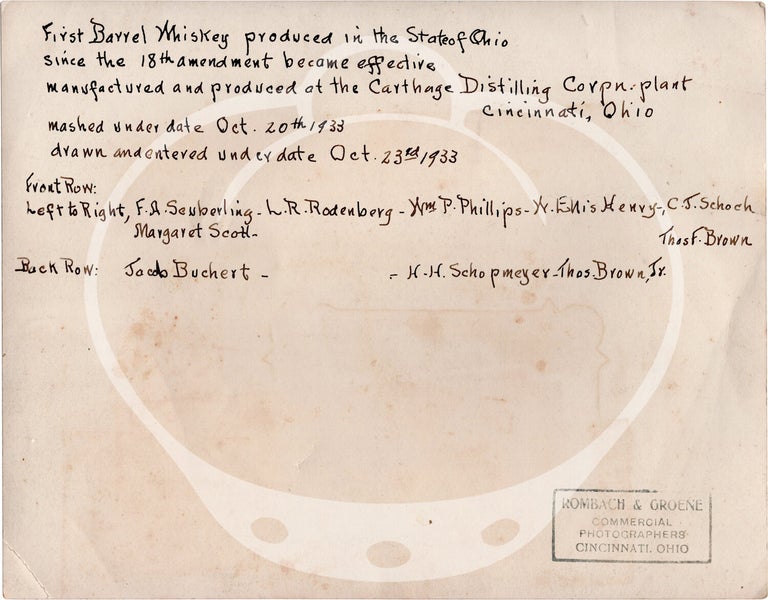 First Barrel Whiskey produced in the State of Ohio
since the 18th amendment became effective
manufactured and produced at the Carthage Distilling Corpn. plant
Cincinnati, Ohio
mashed under date Oct. 20th 1933
drawn and entered under date Oct. 23rd 1933
Front Row:
Left to Right, F.A. Seuberling - L.R. Rodenberg - Wm P. Phillips - W. Ellis Henry -, C.J. Schoch
Margaret Scott - Thos F. Brown
Back Row: Jacob Buchert - - H.H. Schopmeyer - Thos. Brown, Jr.
ROMBACH & GROENE
COMMERCIAL
PHOTOGRAPHERS
CINCINNATI, OHIO